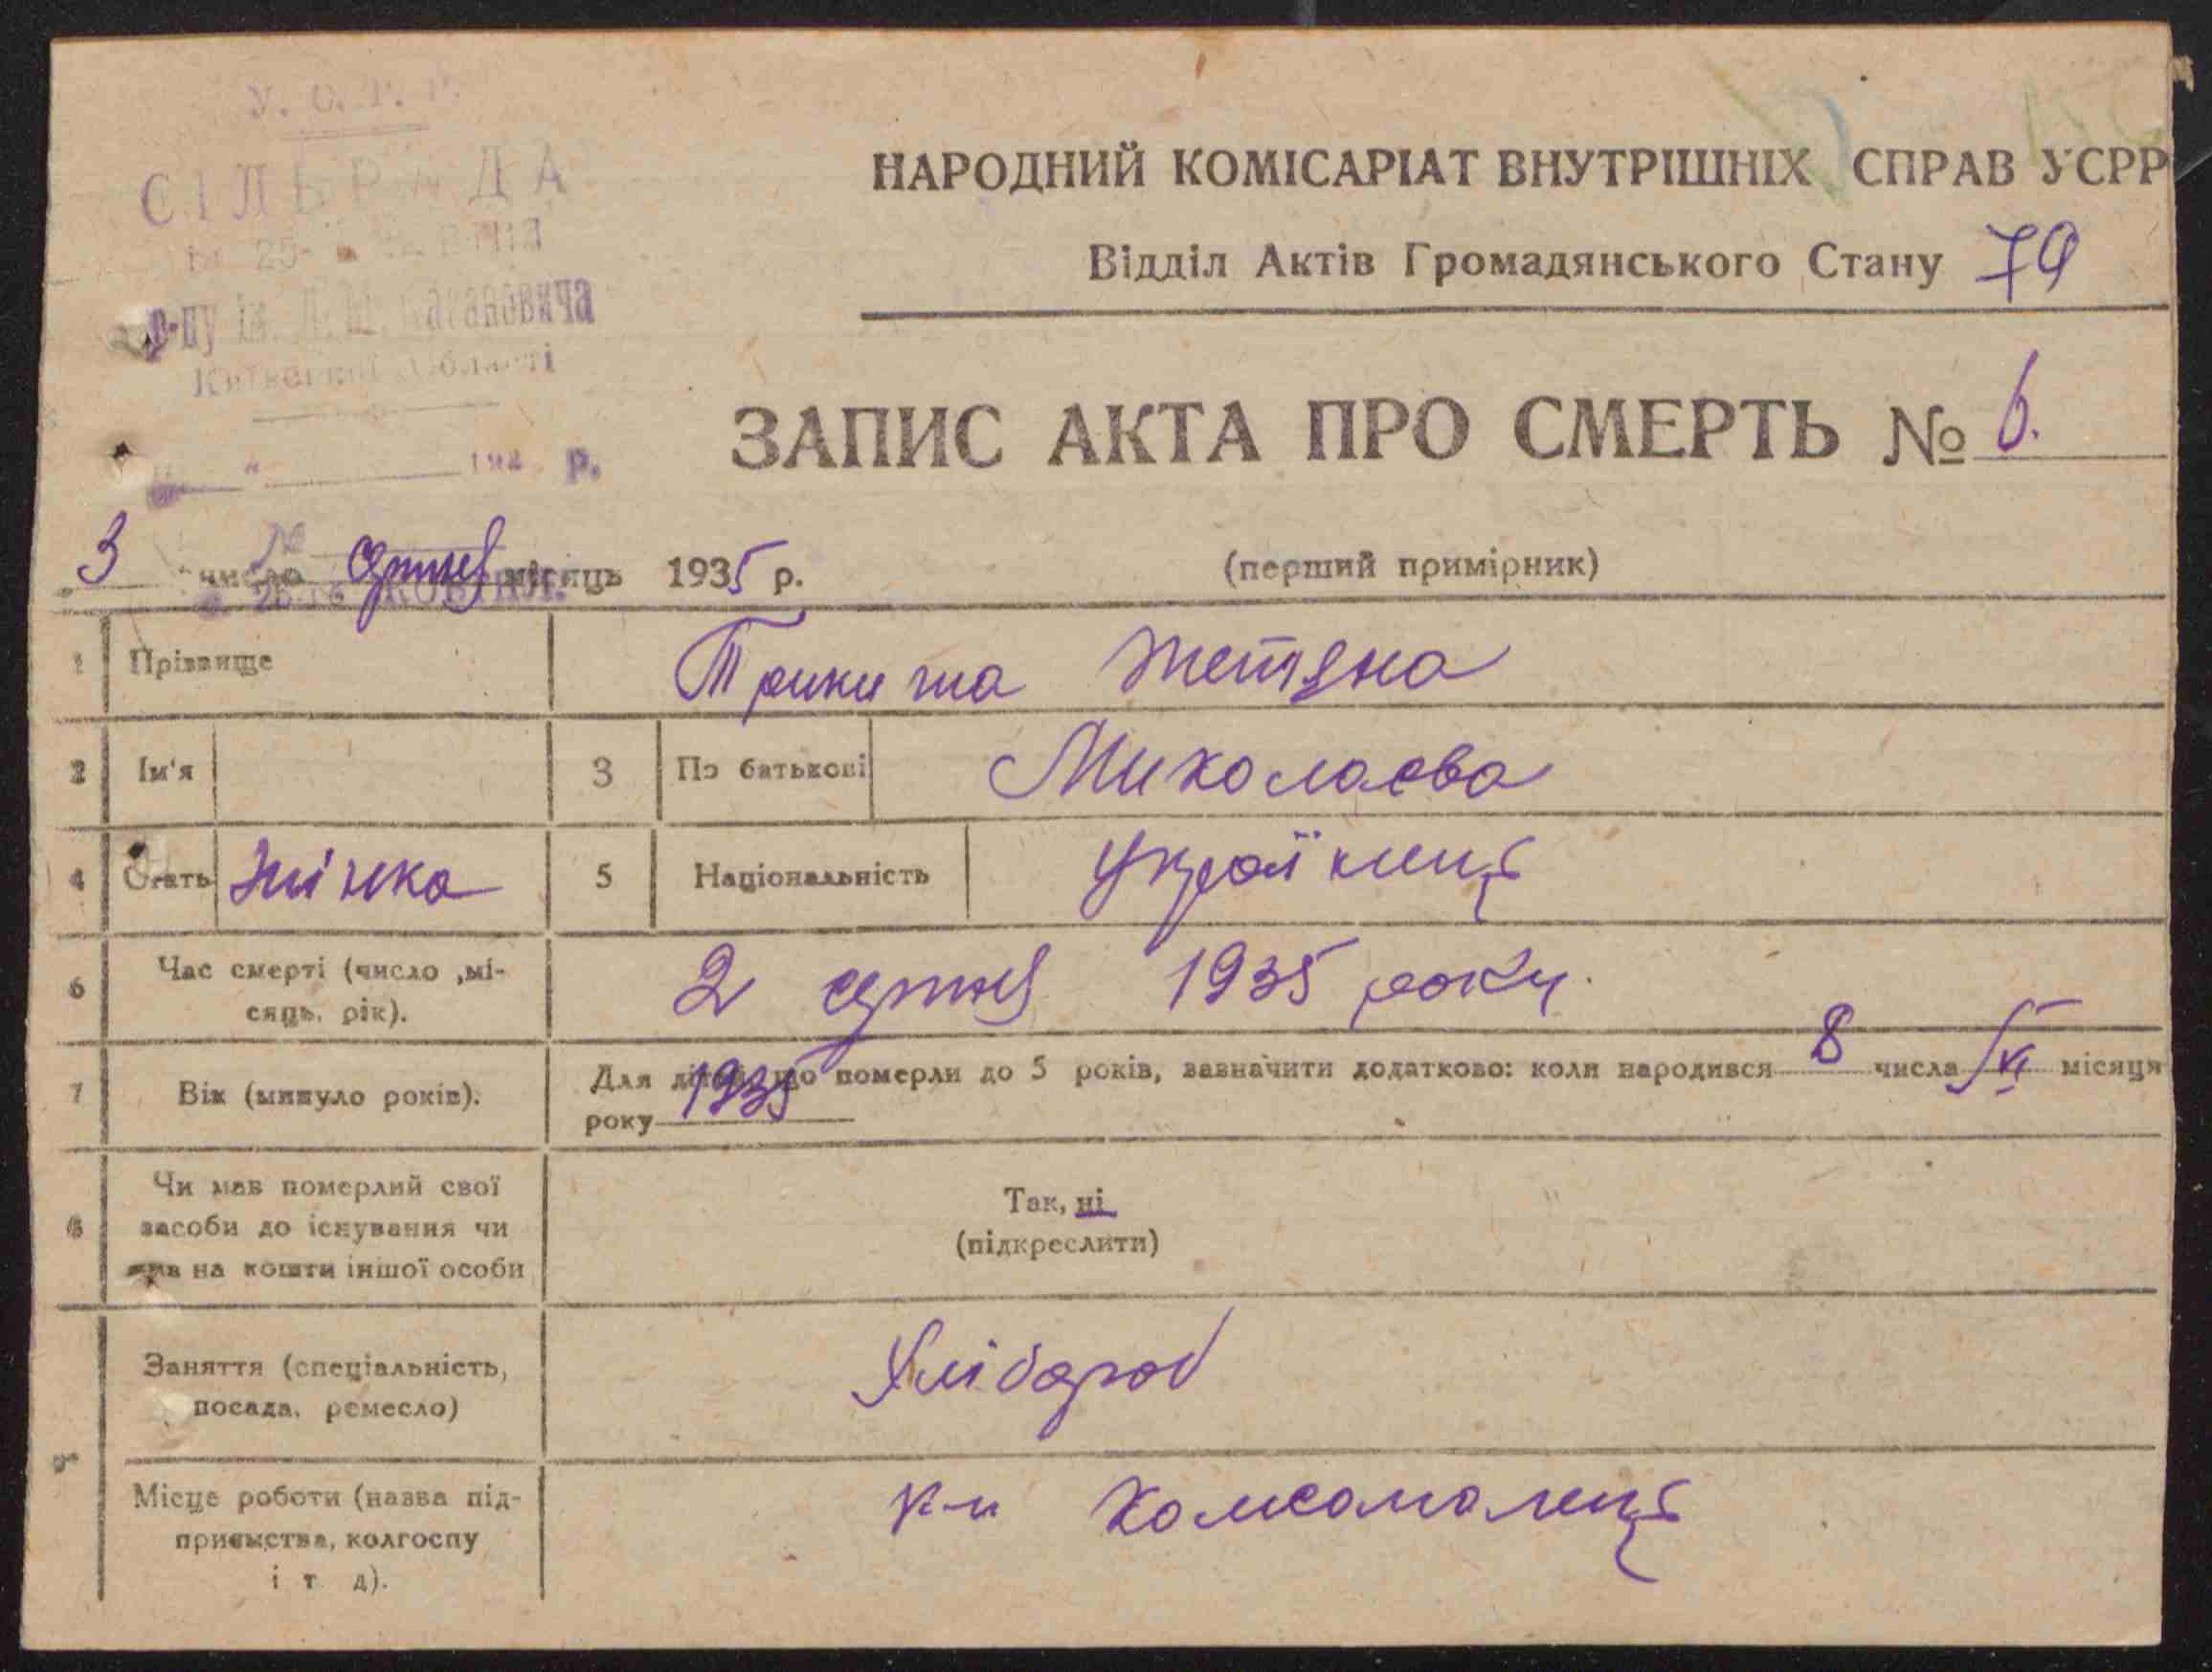 У. С. Р. Р.
СІЛЬРАДА
р-ну ім. Л. М. Кагановича
Київської області
" 193 р.
№
НАРОДНИЙ КОМІСАРІАТ ВНУТРІШНІХ СПРАВ УСРР
Відділ Актів Громадянського Стану 79
ЗАПИС АКТА ПРО СМЕРТЬ № 6.
3 число серпня місяць 1935 р.
(перший примірник)
1 Прізвище Тетяна
2 Ім'я 3 По батькові Миколаєва
4 Стать жінка 5 Національність українець
6 Час смерті (число ,мі-
сяць, рік). 2 серпня 1935 року.
7 Вік (минуло років). Для дітей, що померли до 5 років, зазначити додатково: коли народився 8 числа VI місяця
року 1935
8 Чи мав померлий свої
засоби до існування чи
жив на кошти іншої особи
Так, ні
(підкреслити)
9 Заняття (спеціальність,
посада, ремесло) Хлібороб
Місце роботи (назва під-
приємства, колгоспу
і т д). Комсомолець